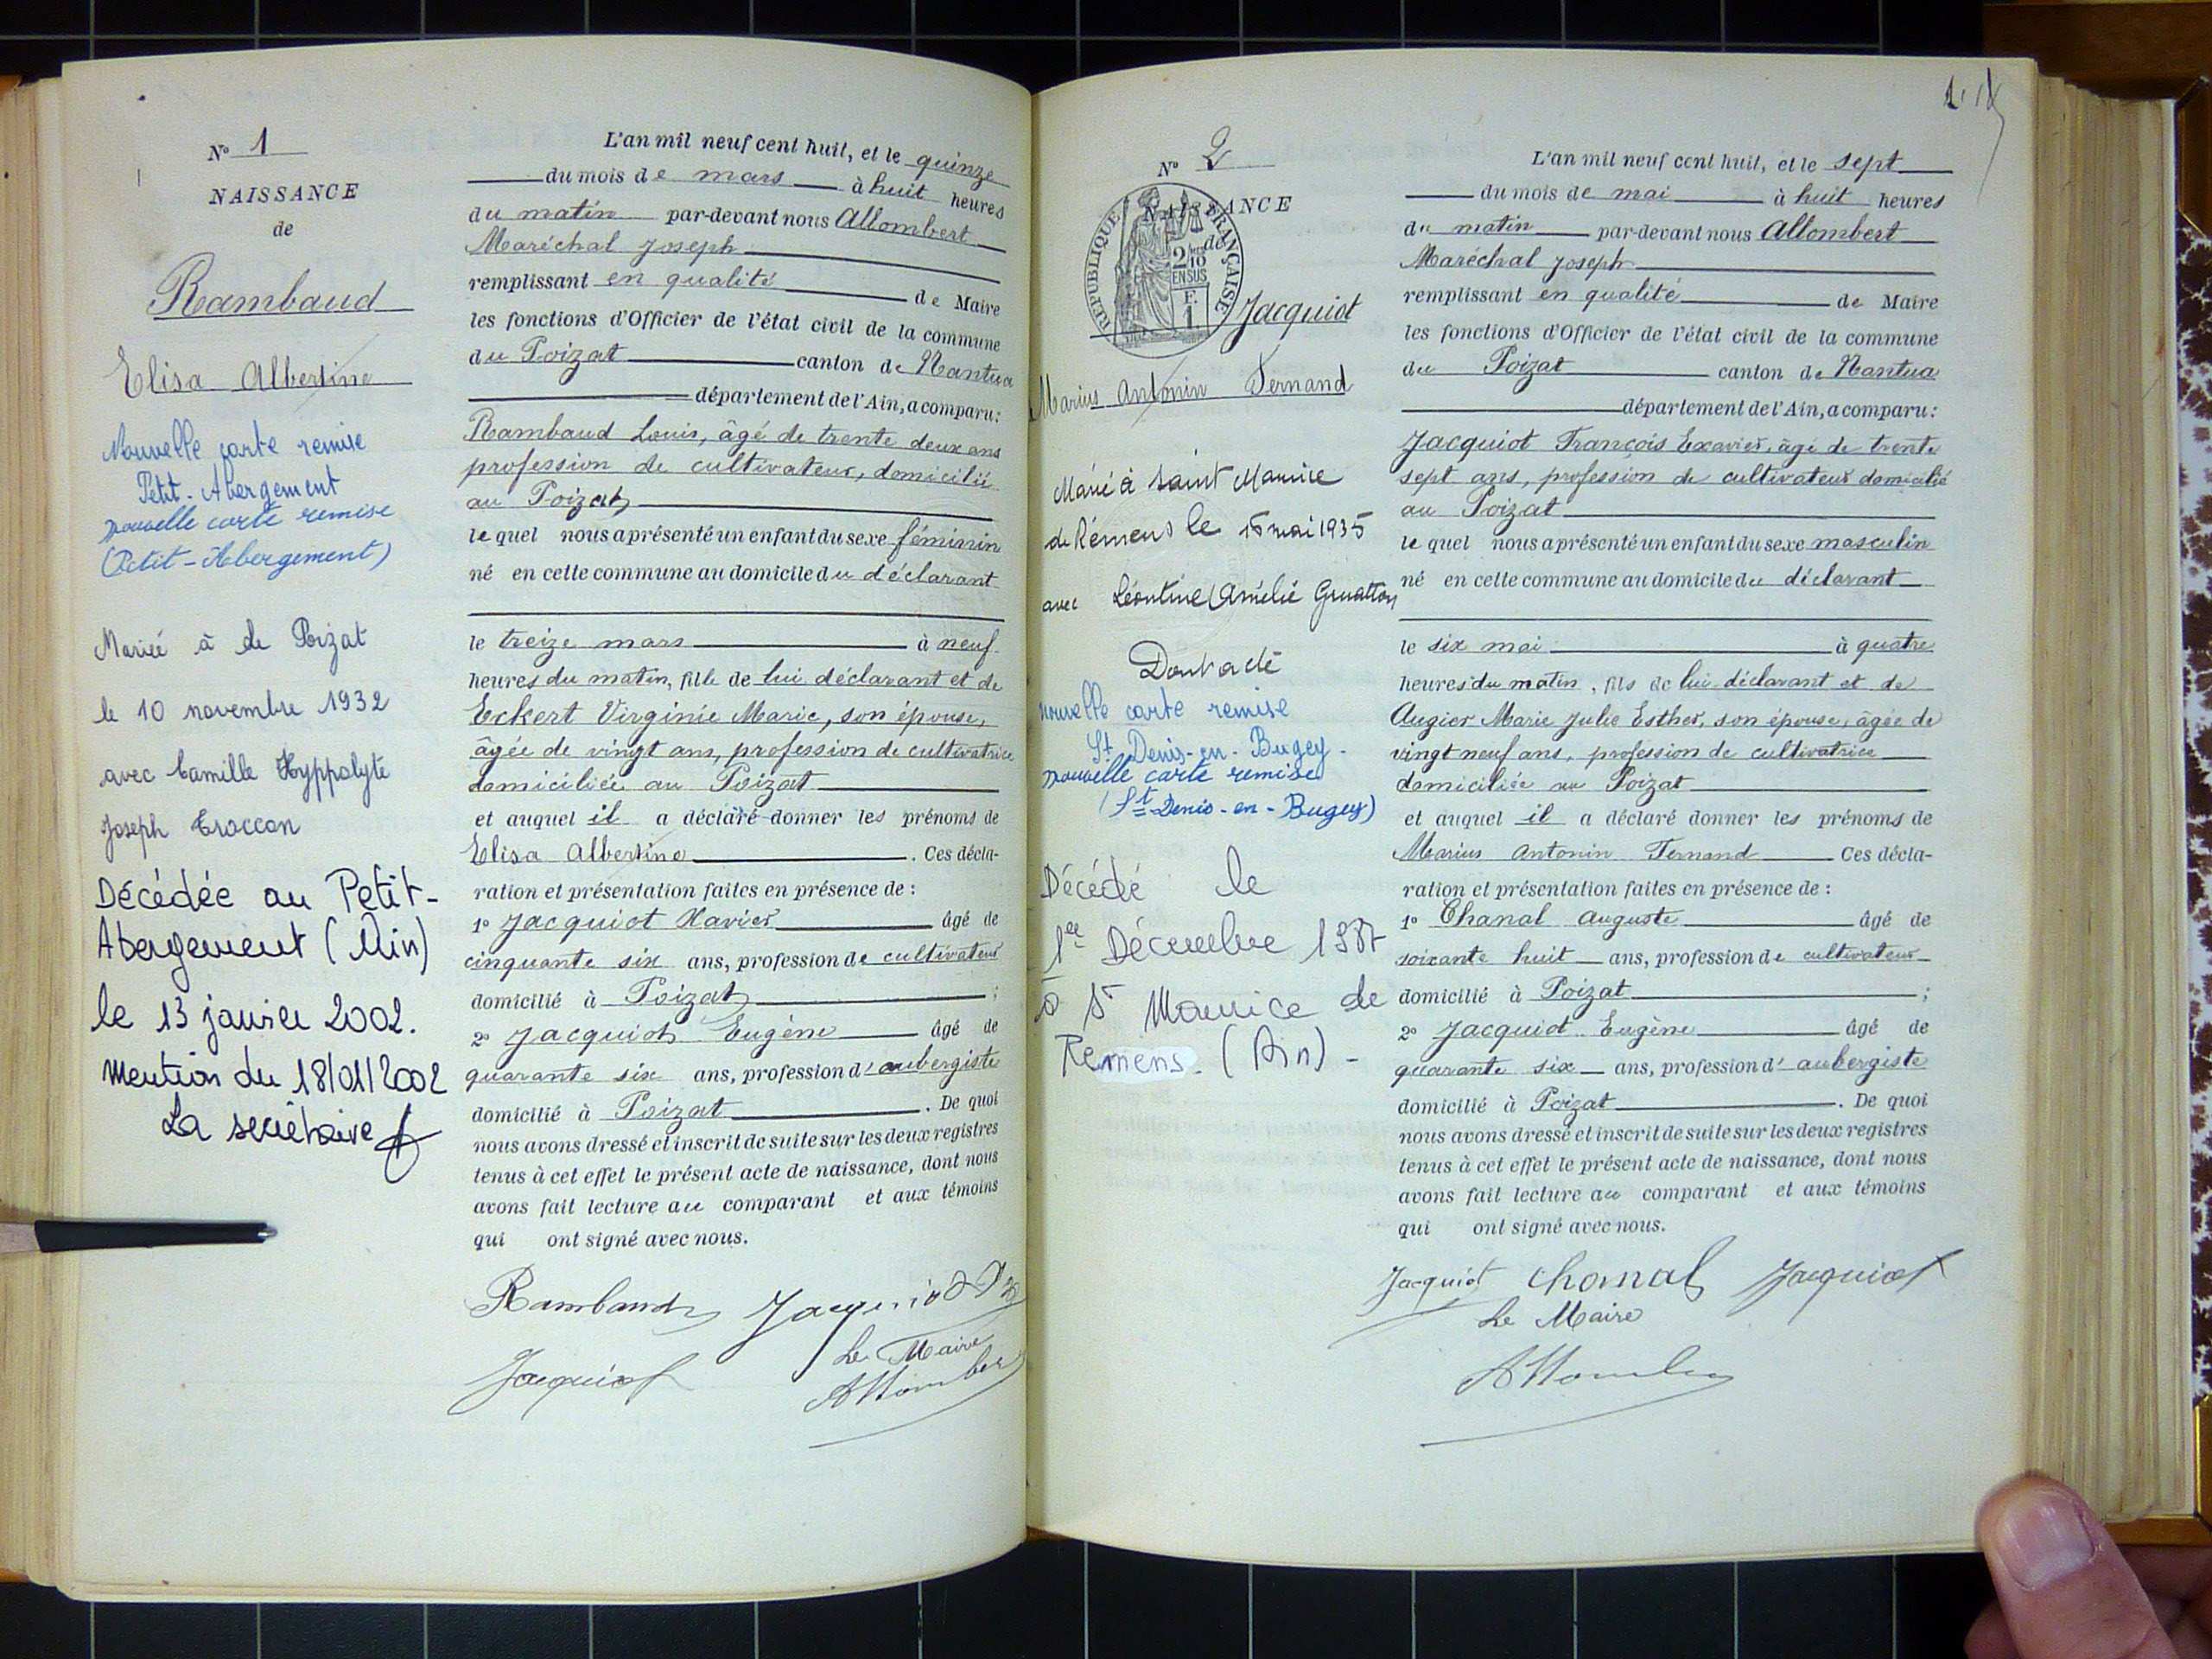 N° 1
NAISSANCE
de
Rambaud
Elisa Albertine
Nouvelle carte remise
Petit-Abergement
nouvelle carte remise
(Petit-Abergement)
Mariée à le Poizat
le 10 novembre 1932
avec Camille Hyppolyte
Joseph Troccon
Décédée au Petit-
Abergement (Ain)
le 13 janvier 2002.
Mention du 18/01/2002
La secrétaire
L'an mil neuf cent huit, et le quinze
du mois de mars à huit heures
du matin par-devant nous Allombert
Maréchal Joseph
remplissant en qualité de Maire
les fonctions d'Officier de l'état civil de la commune
du Poizat canton de Nantua
département de l'Ain, a comparu:
Rambaud Louis, âgé de trente deux ans
profession de cultivateur, domicilié
au Poizat
le quel nous a présenté un enfant du sexe féminin
né en cette commune au domicile du déclarant
le treize mars à neuf
heures du matin, fille de lui déclarant et de
Eckert Virginie Marie, son épouse,
âgée de vingt ans, profession de cultivatrice
domiciliée au Poizat
et auquel il a déclaré donner les prénoms de
Elisa Albertine. Ces décla-
ration et présentation faites en présence de :
1° Jacquiot Xavier âgé de
cinquante six ans, profession de cultivateur
domicilié à Poizat ;
2° Jacquiot Eugène âgé de
quarante six ans, profession d'aubergiste
domicilié à Poizat. De quoi
nous avons dressé et inscrit de suite sur les deux registres
tenus à cet effet le présent acte de naissance, dont nous
avons fait lecture au comparant et aux témoins
qui ont signé avec nous.
Rambaud Jacquiot
Le Maire
Jacquiot Allombert
N° 2
NAISSANCE
de
RÉPUBLIQUE FRANÇAISE
2/10
EN SUS
F.
1.
Jacquiot
Marius Antonin Fernand
Marié à Saint Maurice
de Rémens le 16 mai 1935
avec Léontine Amélie
nouvelle carte remise
St Denis-en-Bugey-
nouvelle carte remise
(St Denis-en-Bugey)
Décédé le
1er Décembre
à St Maurice de
Remens. (Ain)-
L'an mil neuf cent huit, et le sept
du mois de mai à huit heures
du matin par-devant nous Allombert
Maréchal Joseph
remplissant en qualité de Maire
les fonctions d'Officier de l'état civil de la commune
du Poizat canton de Nantua
département de l'Ain, a comparu:
Jacquiot François Exavier, âgé de trente
sept ans, profession de cultivateur domicilié
au Poizat
le quel nous a présenté un enfant du sexe masculin
né en cette commune au domicile du déclarant
le six mai à quatre
heures du matin, fils de lui déclarant et de
Augier Marie Julie Esther, son épouse, âgée de
vingt neuf ans, profession de cultivatrice
domiciliée au Poizat
et auquel il a déclaré donner les prénoms de
Marius Antonin Fernand Ces décla-
ration et présentation faites en présence de :
1° Chanal Auguste âgé de
soixante huit ans, profession de cultivateur
domicilié à Poizat ;
2° Jacquiot Eugène âgé de
quarante six ans, profession d'aubergiste
domicilié à Poizat. De quoi
nous avons dressé et inscrit de suite sur les deux registres
tenus à cet effet le présent acte de naissance, dont nous
avons fait lecture au comparant et aux témoins
qui ont signé avec nous.
Jacquiot Chanal Jacquiot
Le Maire
Allombert